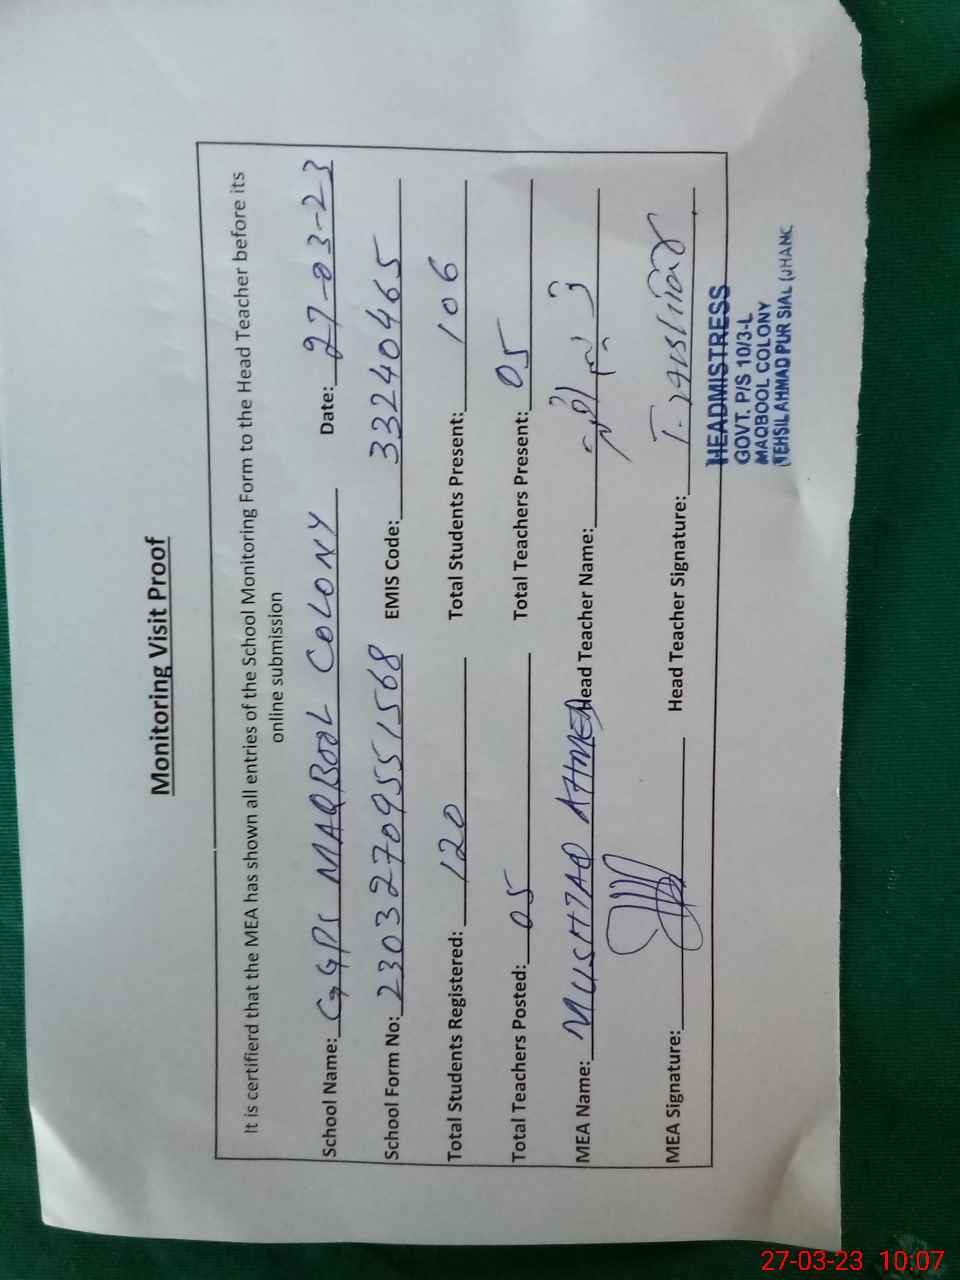 Monitoring Visit Proof
It is certifierd that the MEA has shown all entries of the School Monitoring Form to the Head Teacher before its
online submission
School Name: GGPS MAQBOOL COLONY Date: 27-03-23
School Form No: 230327095551568 EMIS Code: 33240465
Total Students Registered: 120 Total Students Present: 106
Total Teachers Posted: 05 Total Teachers Present: 05
MEA Name: MUSHTAQ AHMED Head Teacher Name:
MEA Signature: Head Teacher Signature:
HEADMISTRESS
GOVT. P/S 10/3-L
MAQBOOL COLONY
TEHSIL AHMAD PUR SIAL (JHANG
27-03-23 10:07